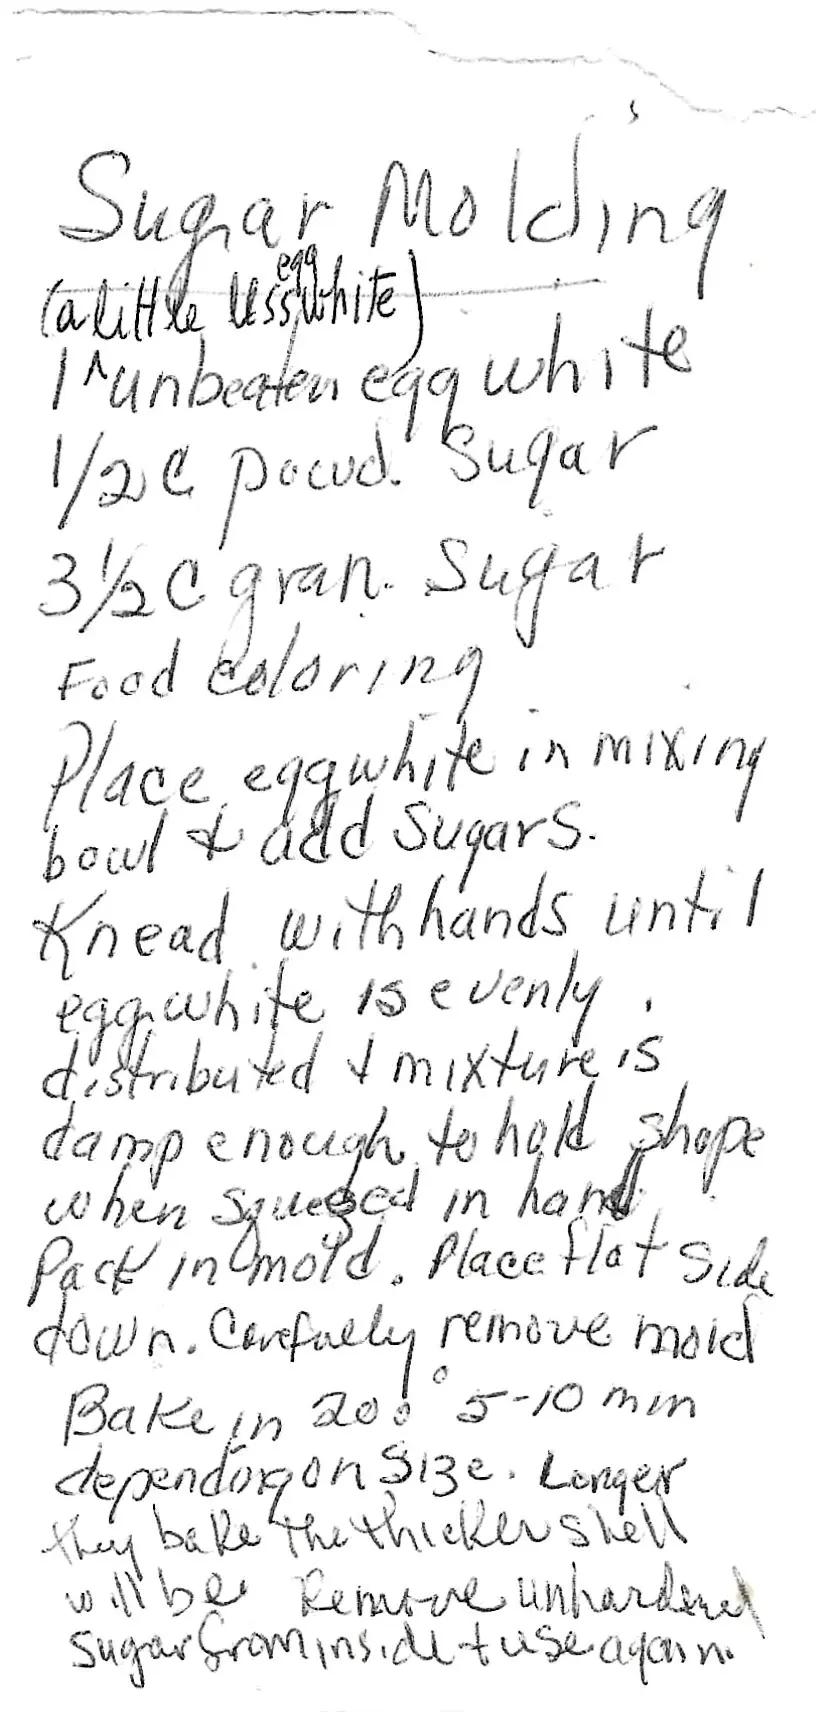 Sugar Molding
(a little less egg white)
1 ^ unbeaten egg white
1/2 C powd. Sugar
3 1/2 C gran. Sugar
Food coloring
Place egg white in mixing
bowl & add sugars.
Knead with hands until
egg white is evenly
distributed & mixture is
damp enough to hold shape
when squeezed in hand
Pack in mold. Place flat side
down. Carefully remove mold
Bake in 200° 5-10 min
depending on size. Longer
they bake the thicker shell
will be Remove unhardened
sugar from inside & use again.